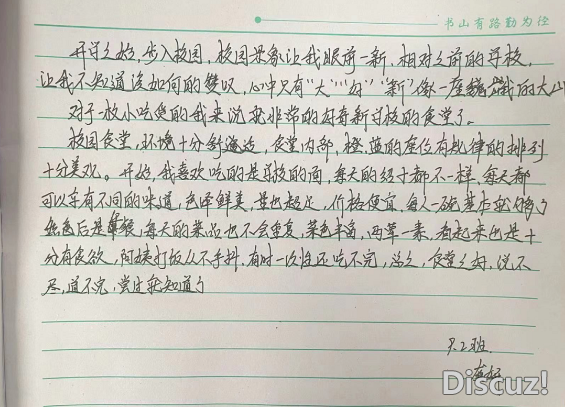 书山有路勤为径
开学之始,步入校园,校园景象让我眼前一新,相对之前的学校,
让我不知道该如何的赞叹,心中只有“大”“好”“新”像一座巍峨的大山
对于一枚小吃货的我来说就非常的好奇新学校的食堂了。
校园食堂,环境十分舒适,食堂内部,橙、蓝的座位有规律的排列
十分美观。开始,我喜欢吃的是学校的面,每天的绍子都不一样,每天都
可以享有不同的味道,色泽鲜美,量也超足,价格便宜,每人一碗基本就够了
后是,每天的菜品也不会重复,菜色丰富,两荤一素,看起来也是十
分有食欲,阿姨打饭从不手抖,有时一次性还吃不完,总之,食堂之好,说不
尽,道不完,尝过就知道了
2班
Discuz!